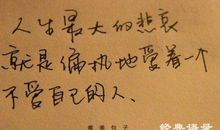 人生最大的悲哀
就是偏执地爱着一个
不爱自己的人、
经典语录